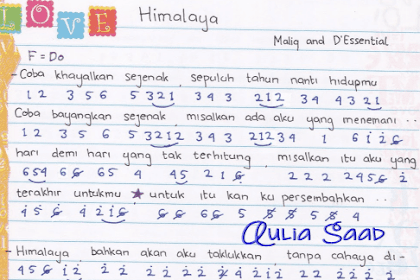 LOVE
Himalaya
Maliq and D'Essential
F = Do
- Coba khayalkan sejenak, sepuluh tahun nanti hidupmu
1 2 3 5 6 5 3 2 1 3 4 3 2 1 2 3 4 4 3 2 1
Coba bayangkan sejenak, misalkan ada aku yang menemani..
1 2 3 5 6 5 3 2 1 2 3 4 3 2 1 2 3 4 1 6 i 2 6
hari demi hari yang tak terhitung, misalkan itu aku yang
6 5 4 6 6 6 5 4 4 5 2 1 6 2 2 2 2 4 5 6 2
terakhir untukmu ★ untuk itu kan ku persembahkan..
4 5 6 4 2 1 6 6 6 6 6 5 5 5 5 5 4
Aulia Saad
- Himalaya bahkan akan aku taklukkan tanpa cahaya di -